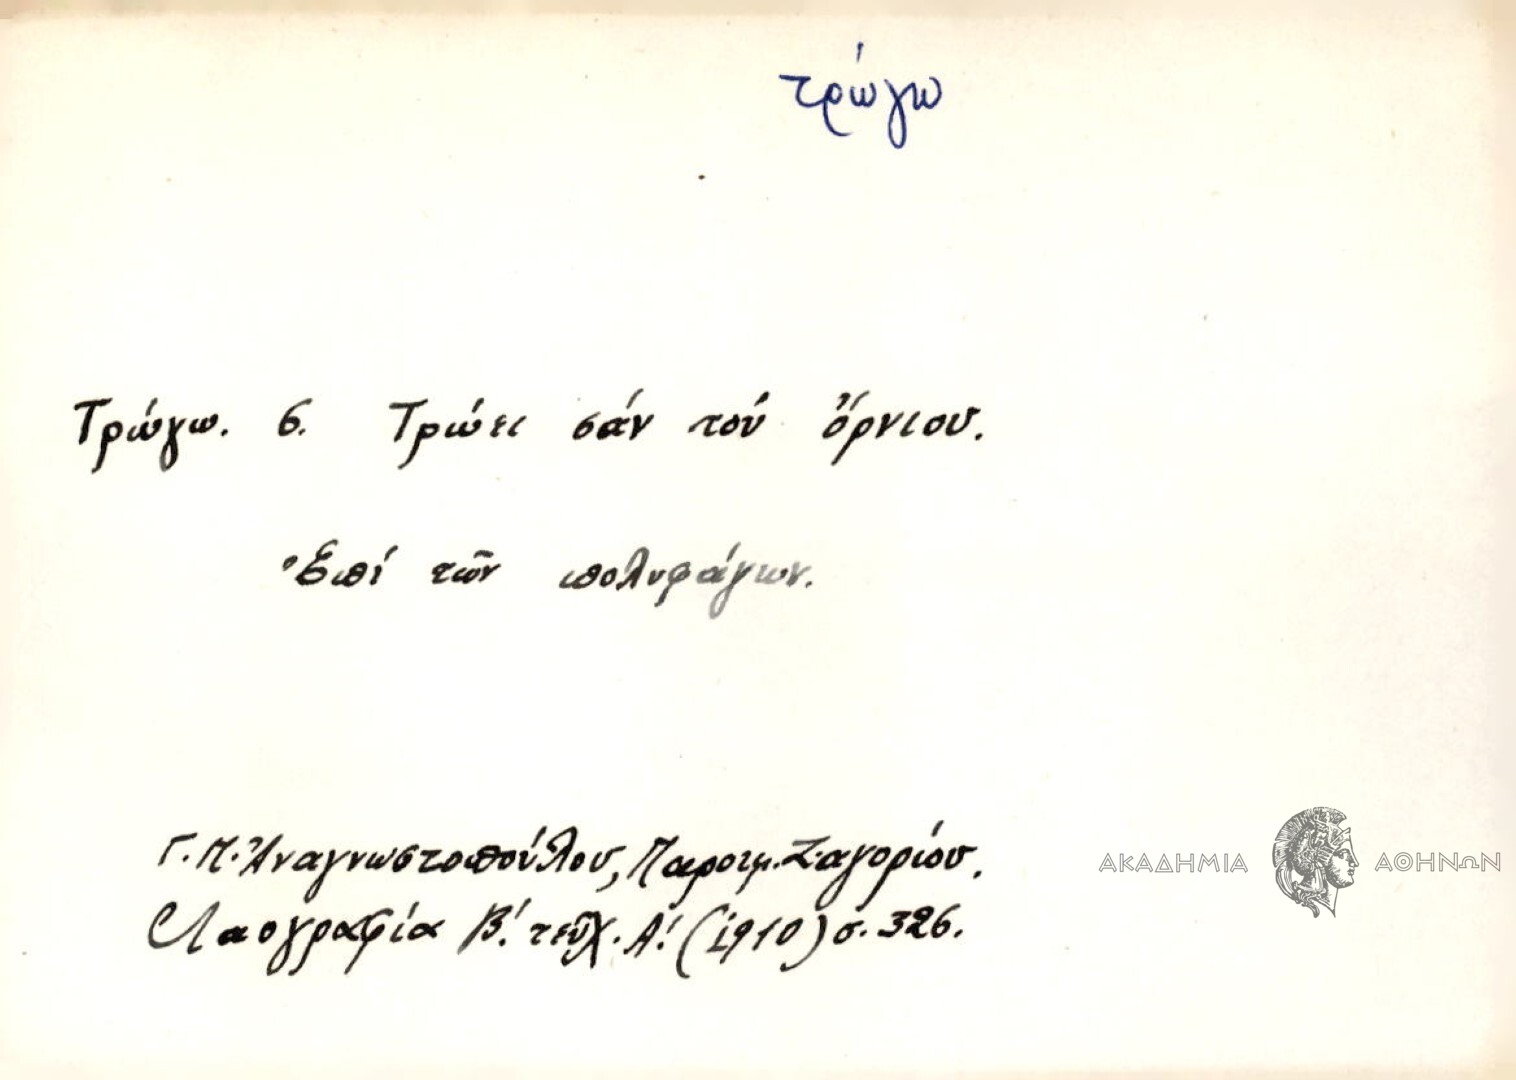 τρώγω
Τρώγω. 6. Τρώει σάν τού ὄρνιου.
Ἐπί τῶν πολυφάγων.
Γ. Π. Ἀναγνωστοπούλου, Παροιμ. Ζαγορίου.
Λαογραφία Β΄. τεῦχ. Α΄. (1910) σ. 326.
ΑΚΑΔΗΜΙΑ ΑΘΗΝΩΝ